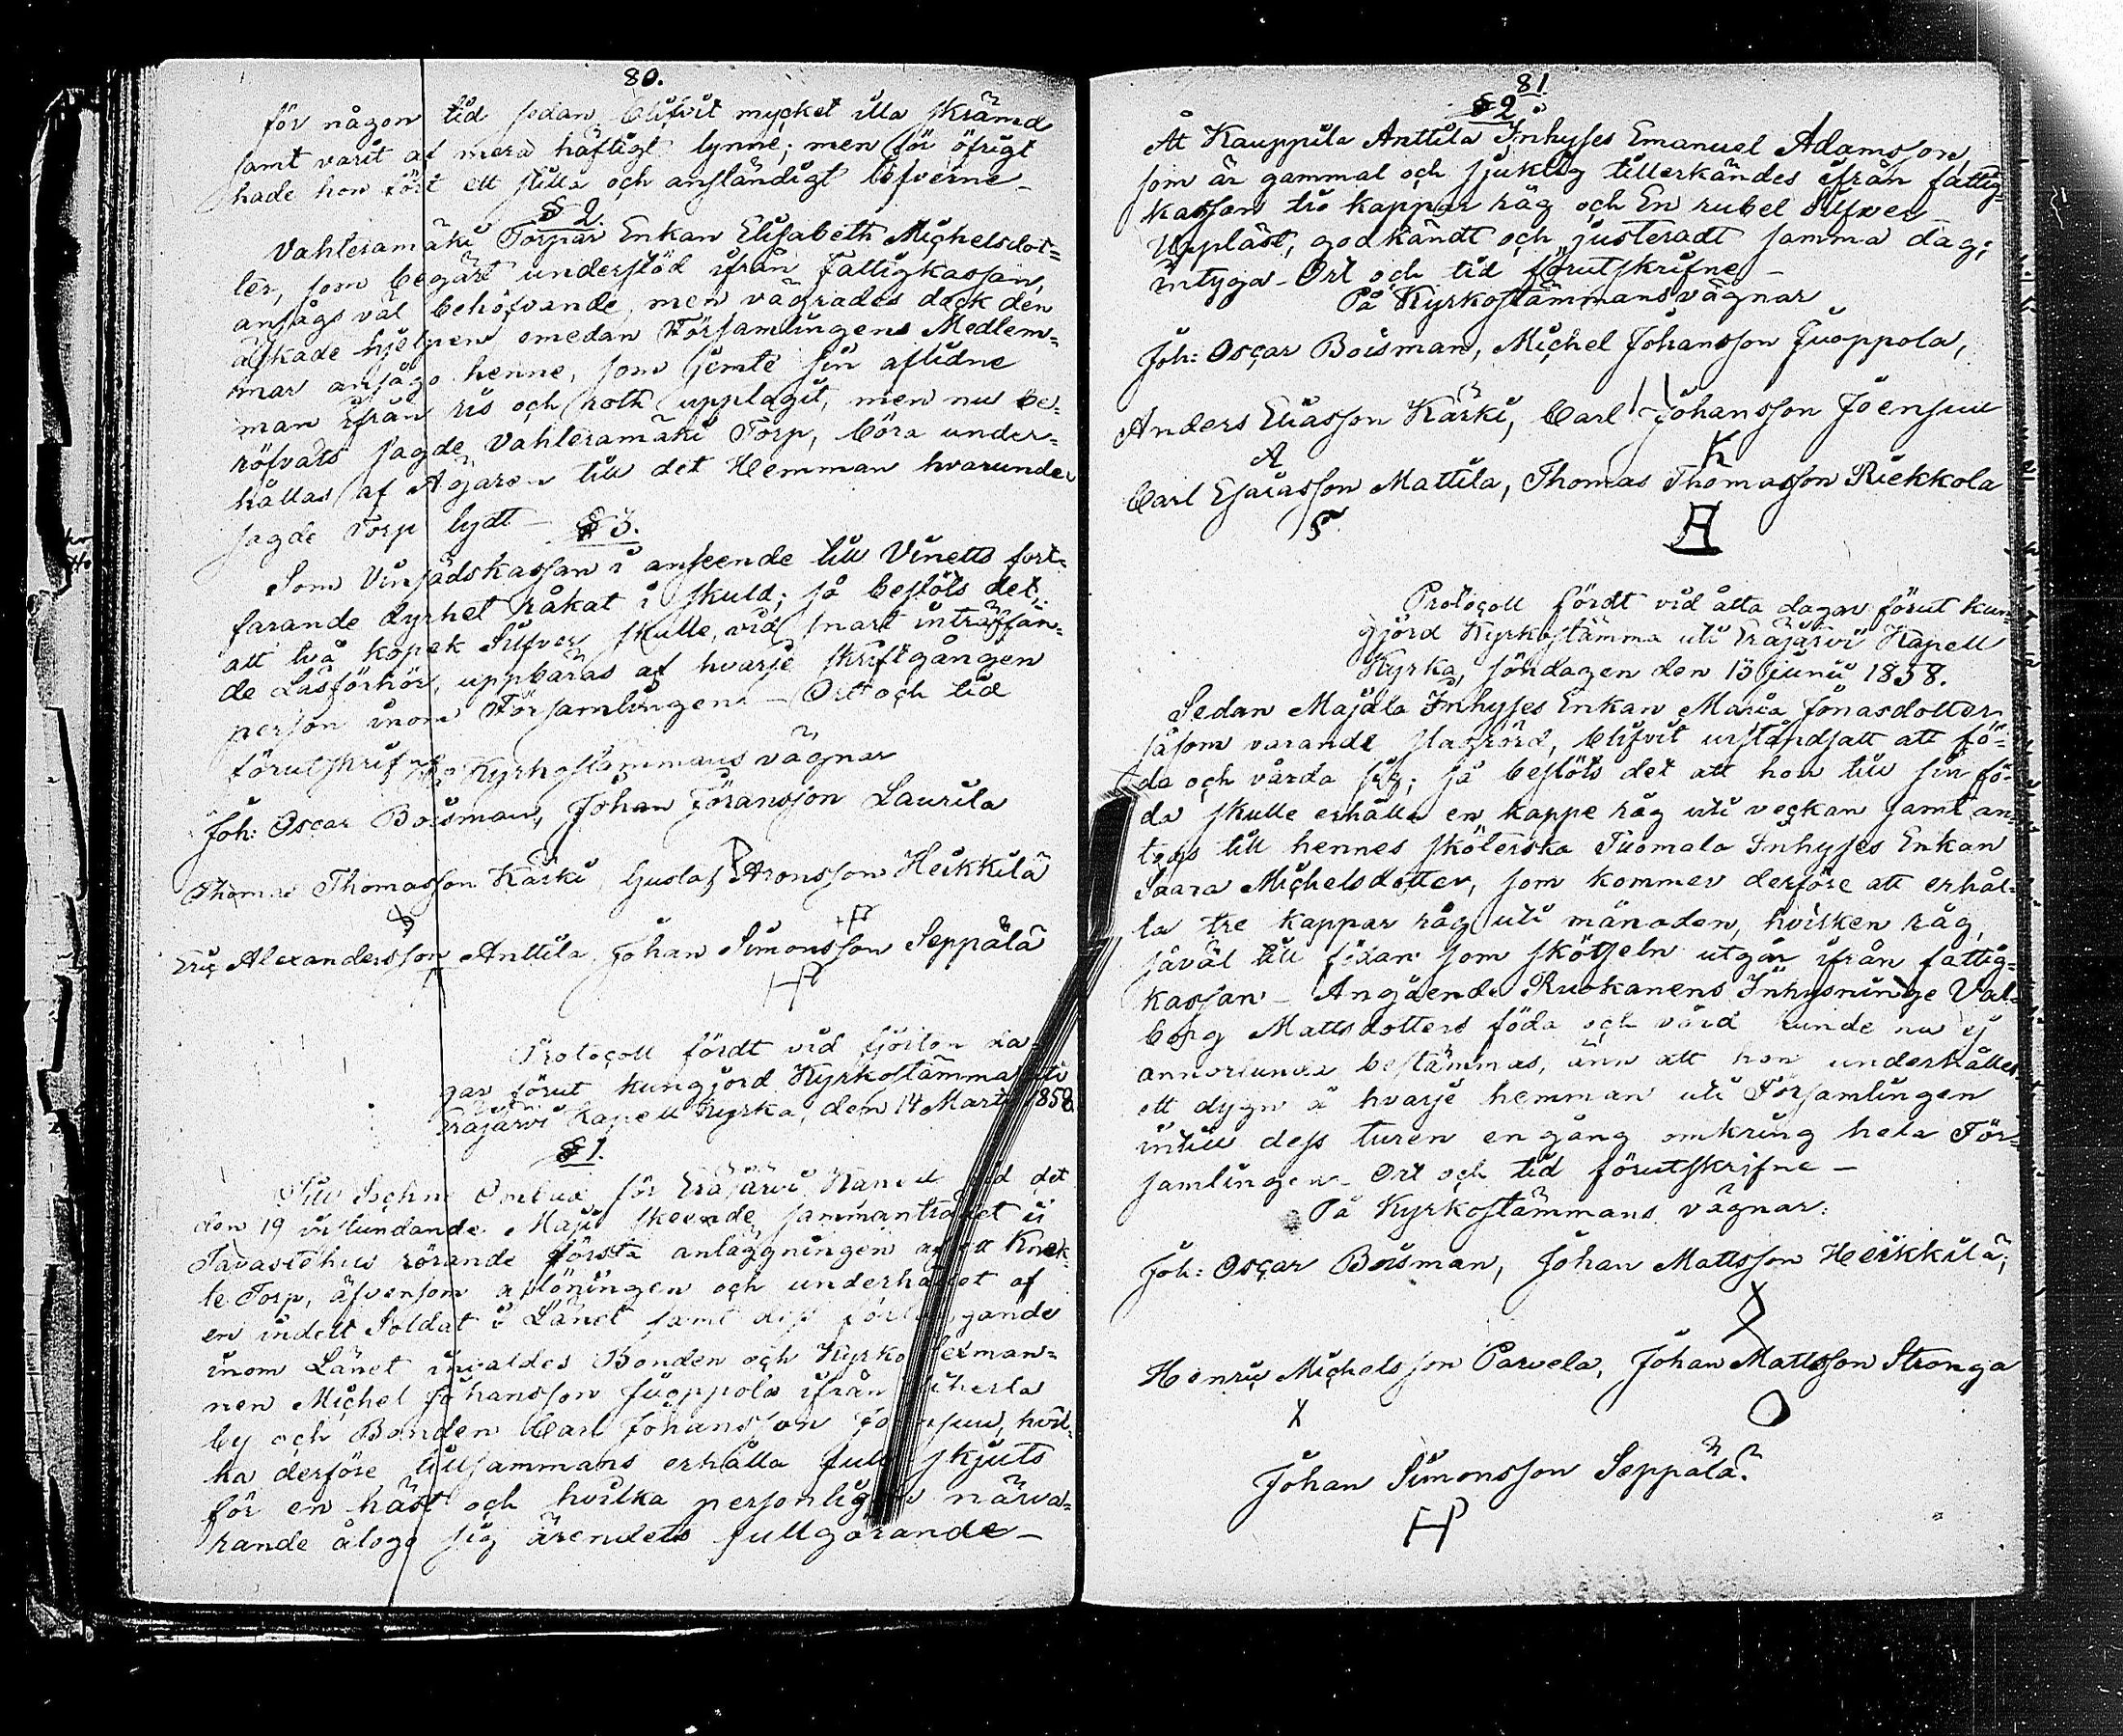 80.
för någon tid sedan blifvit mycket illa skrämd
samt varit af mera häftigt lynne; men för öfrigt
hade hon fört ett stilla och anständigt lefverne_
§ 2.
Vahteramäki Torpar Enkan Elisabeth Michelsdot=
ter, som begärt understöd ifrån Fattigkassan,
ansågs väl behöfvande, men vägrades dock den
äskade hjelpen emedan Församlingens Medlem=
mar ansågo henne, som jemte sin aflidne
man ifrån ris och roth upptagit, men nu be=
röfvats sagde Vahteramäki Torp, böra under=
hållas af Ägaren till det Hemman hvarunder
sagde Torp lydt _
§ 3.
Som Vinsädskassan i anseende till Vinetts fort=
farande dyrhet råkat i skuld; så beslöts det,
att två kopek Silfver skulle, vid snart inträffan=
de Läsförhör, uppbäras af hvarje skriftgången
person inom Församlingen. _ Ort och tid
förutskrifne
På Kyrkostämmans vägnar
Joh: Oscar Boisman, Johan Göransson Laurila
Thomas Thomasson Kärki, Gustaf Aronsson Heikkilä
Eric Alexandersson Anttila, Johan Simonsson Seppälä
Protocoll fördt vid fjorton da=
gar förut kungjord Kyrkostämma uti
Eräjärvi Kapell Kyrka, den 14 Martii 1858.
§ 1.
Till Sochne Ombud för Eräjärvi Kapell vid det
den 19 instundande Maji skeende sammanträdet i
Tavastehus rörande första anläggningen af ett Knek=
te Torp, äfvensom aflöningen och underhållet af
en indelt Soldat i Länet samt dess
inom Länet invaldes Bonden och Kyrko
nen Michel Johansson Juoppola ifrån
by och Bonden Carl Johansson Joensuu, hvil=
ka derföre tillsammans erhålla full skjuts
för en häst och hvilka personligen närva=
rande ålogo sig ärendets fullgörande _
81.
§ 2.
Åt Kauppila Anttila Inhyses Emanuel Adamsson,
som är gammal och sjuklig tillerkändes ifrån fattig=
kassan tio kappar råg och En rubel silfver_
Uppläst, godkändt och justeradt samma dag;
intyga_ Ort och tid förutskrifne_
På Kyrkostämmans vägnar
Joh: Oscar Boisman, Michel Johansson Juoppola,
Anders Eliasson Kärki, Carl Johansson Joensuu
A K
Carl Esaiasson Mattila, Thomas Thomasson Riekkola
Protocoll fördt vid åtta dagar förut kun=
gjord Kyrkostämma uti Eräjärvi Kapell
Kyrka, söndagen den 13 Junii 1858.
Sedan Majala Inhyses Enkan Maria Jonasdotter,
såsom varande slagrörd, blifvit urståndsatt att fö=
da och vårda sig; så beslöts det att hon till sin fö=
da skulle erhålla en kappe råg uti veckan samt an=
togs till hennes sköterska Tuomala Inhyses Enkan
Saara Michelsdotter, som kommer derföre att erhål=
la tre kappar råg uti månaden, hvilken råg,
såväl till födan som skötseln utgår ifrån fattig=
kassan _ Angående Ruokanens Inhysninge Val=
borg Mattsdotters föda och vård kunde nu ej
annorlunda bestämmas, änn att hon underhålles
ett dygn å hvarje hemman uti Församlingen
intill dess turen en gång omkring hela För=
samlingen_ Ort och tid förutskrifne _
På Kyrkostämmans vägnar:
Joh: Oscar Boisman, Johan Mattsson Heikkilä;
Henric Michelsson Parvela, Johan Mattsson Stronga
Johan Simonsson Seppälä.